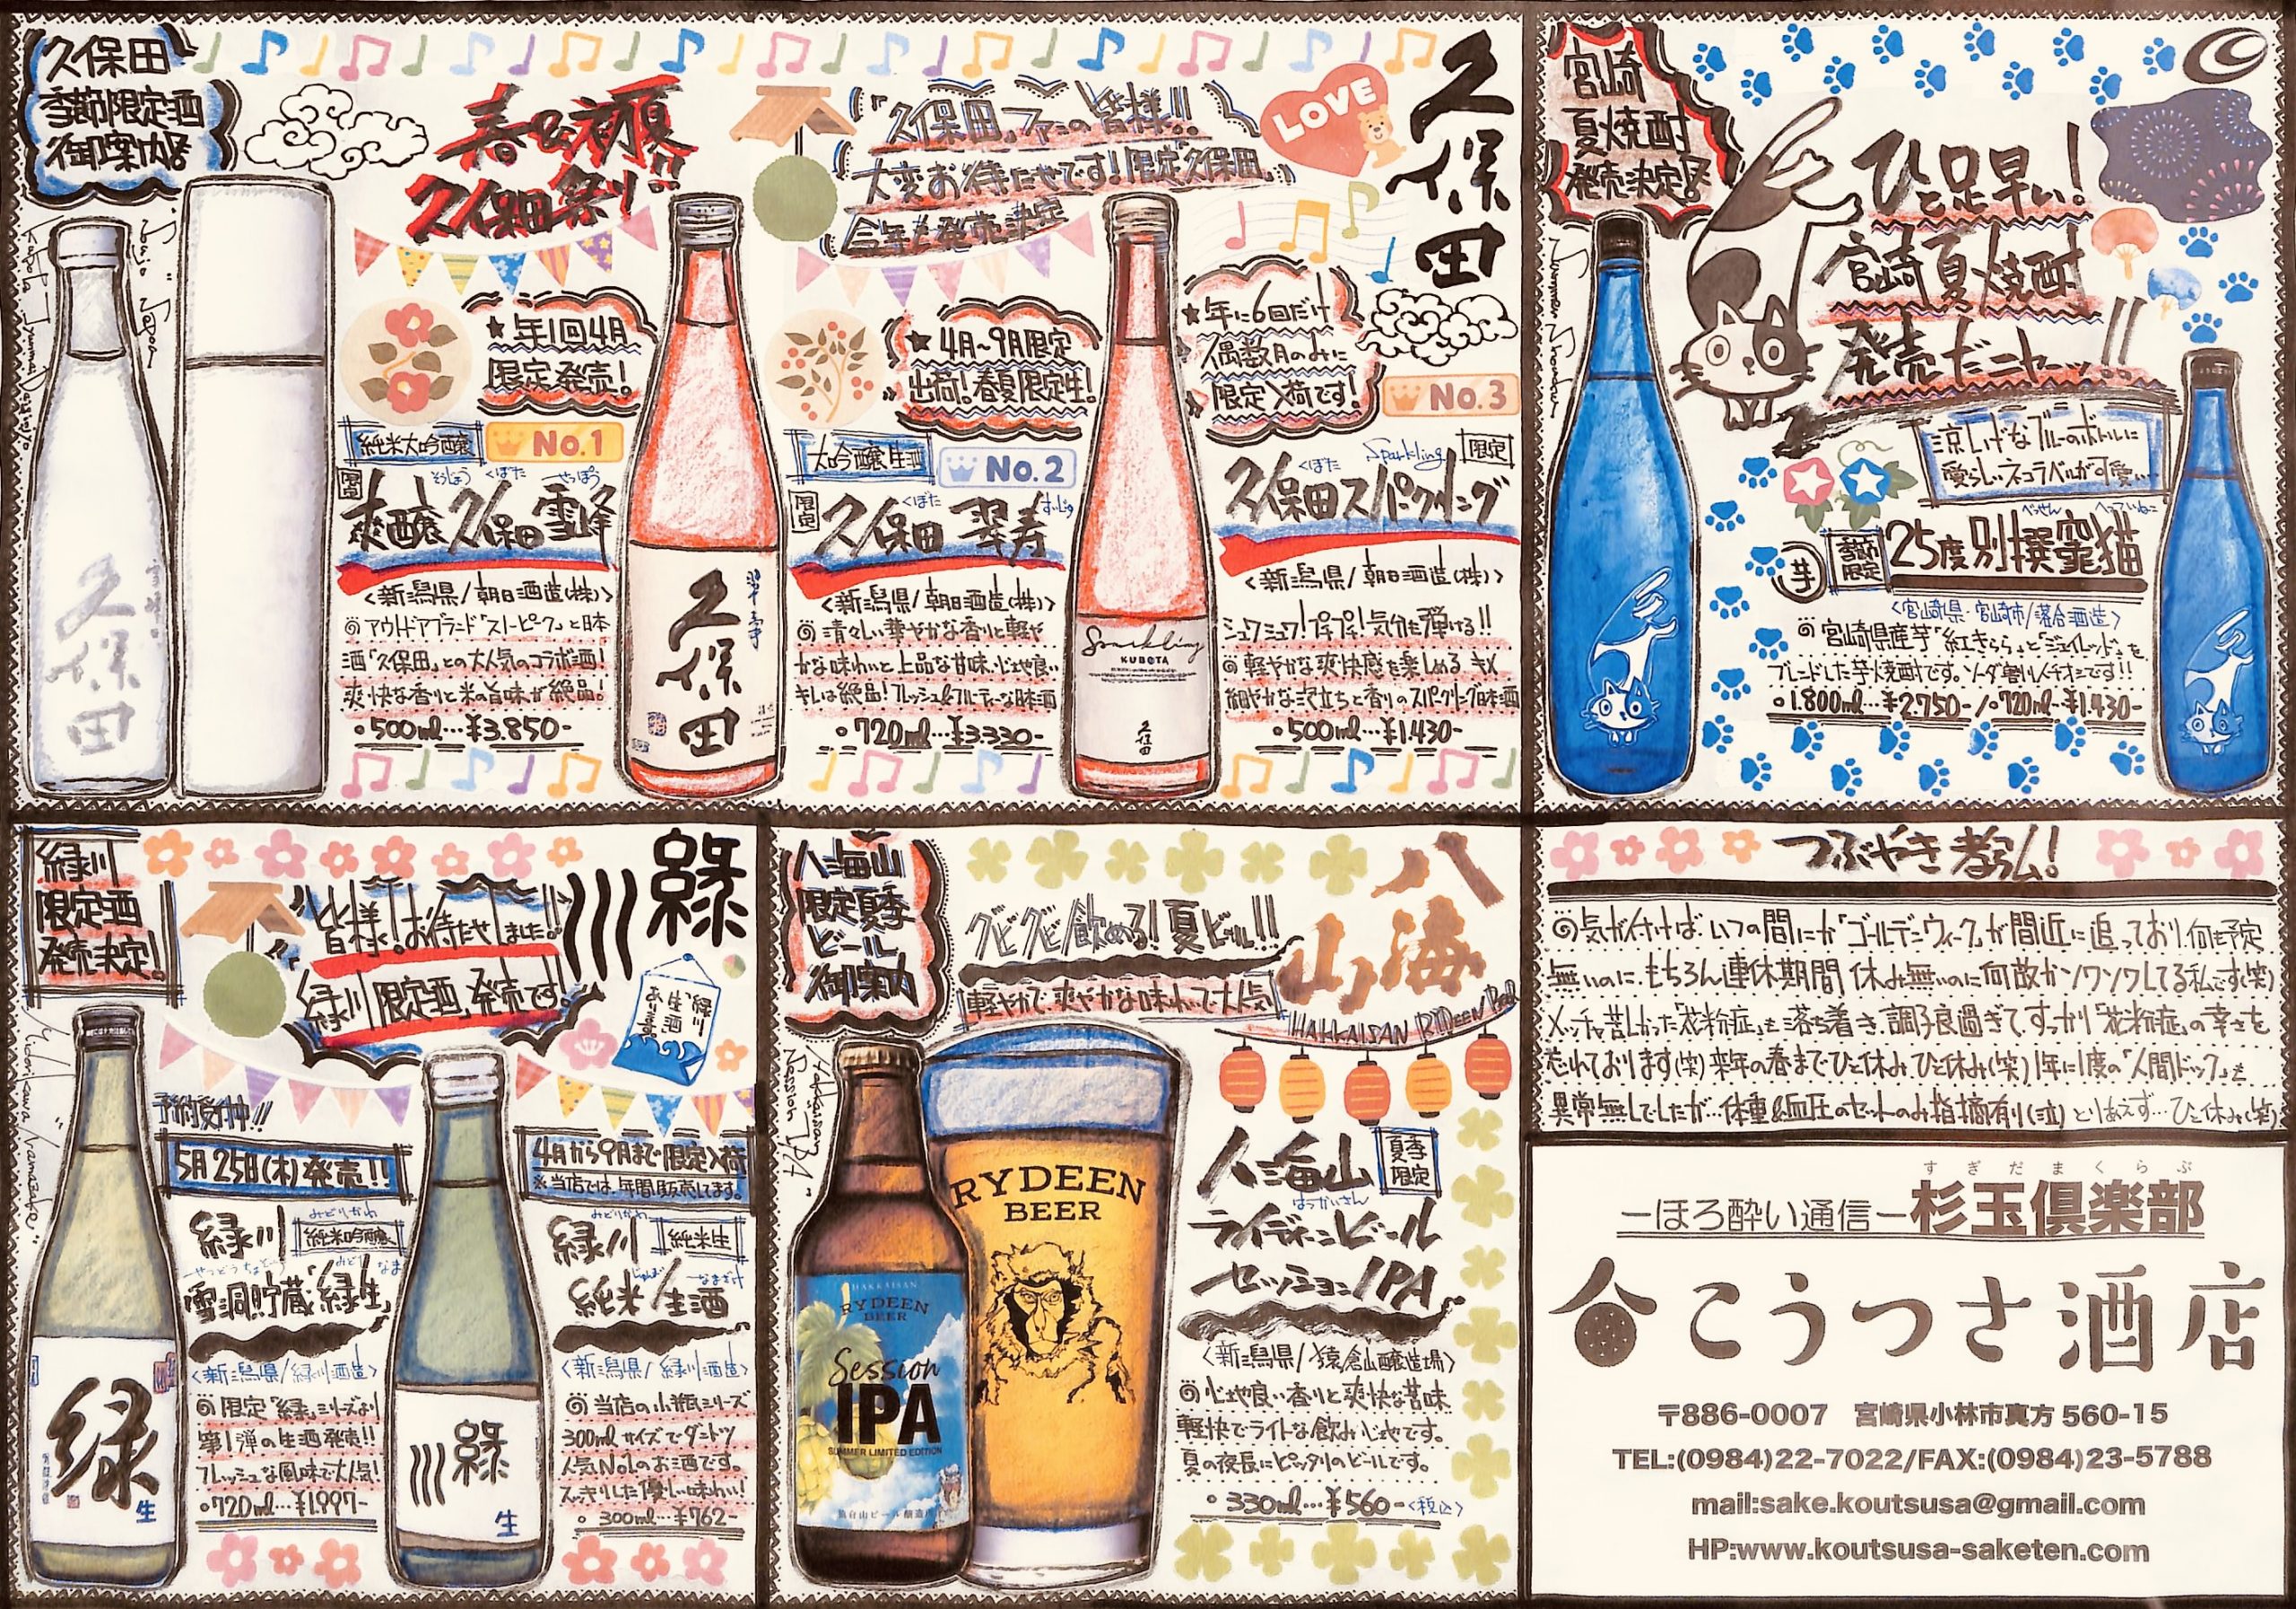 久保田
季節限定酒
御案内!!
春&初夏
久保田祭り!!
「久保田」ファンの皆様!!
大変お待たせです!限定「久保田」
今年も発売決定
LOVE
久保田
★年1回4月
限定発売!
純米大吟醸
No.1
限定
そうじょう くぼた せっぽう
爽醸久保田雪峰
<新潟県/朝日酒造(株)>
◎アウトドアブランド「スノーピーク」と日本
酒「久保田」との大人気のコラボ酒!
爽快な香りと米の旨味が絶品!
・500ml…¥3.850-
久保田
久保田
翠寿
★4月~9月限定
出荷!春夏限定生!
大吟醸生酒
No.2
限定
くぼた すいじゅ
久保田 翠寿
<新潟県/朝日酒造(株)>
◎清々しい華やかな香りと軽や
かな味わいと上品な甘味、心地良い
キレは絶品!フレッシュ&フルーティーな日本酒
・720ml…¥3330-
Sparkling
KUBOTA
久保田
★年に6回だけ
偶数月のみに
限定入荷です!
No.3
くぼた Sparkling
限定
久保田スパークリング
<新潟県/朝日酒造(株)>
シュワシュワ!プチプチ!気分も弾ける!!
◎軽やかな爽快感を楽しめる、キメ
細やかな泡立ちと香りのスパークリング日本酒
・500ml…¥1.430-
宮崎
夏焼酎
発売決定!!
ひと足早い!
宮崎夏焼酎
発売だニャーッ!!
涼しげなブルーのボトルに
愛らしいネコラベルが可愛い
芋
季節限定
べっせん へっついねこ
25度別撰竃猫
<宮崎県・宮崎市/落合酒造>
◎宮崎県産芋「紅きらら」と「ジェイレッド」を
ブレンドした芋焼酎です。ソーダ割りイチオシです!!
・1.800ml…¥2.750-/・720ml…¥1.430-
緑川
限定酒
発売決定!
皆様!お待たせしました!
緑川限定酒、発売です。
緑川
予約受付中!!
5月25日(木)発売!!
みどりかわ
緑川
純米吟醸
雪洞貯蔵「緑生」
<新潟県/緑川酒造>
◎限定「緑」シリーズより
第1弾の生酒発売!!
フレッシュな風味で大人気!
・720ml…¥1.997-
緑
生
4月から9月まで限定入荷
※当店では、年間販売してます。
みどりかわ
緑川
純米生
純米/生酒
<新潟県/緑川酒造>
◎当店の小瓶シリーズ
300mlサイズでダントツ
人気No.1のお酒です。
スッキリした優しい味わい!
・300ml…¥762-
緑川
生
八海山
限定夏季
ビール
御案内
グビグビ飲める!夏ビール!!
軽やかで、爽やかな味わいで大人気
八海山
HAKKAISAN RYDEEN Beer
RYDEEN
BEER
HAKKAISAN
RYDEEN
BEER
Session
IPA
SUMMER LIMITED EDITION
八海山
夏季限定
はっかいさん
ライディーンビール
セッションIPA
<新潟県/猿倉山醸造場>
◎心地良い香りと爽快な苦味
軽快でライトな飲み心地です。
夏の夜長にピッタリのビールです。
・330ml…¥560-<税込>
つぶやき孝ラム!
◎気が付けば、いつの間にか「ゴールデンウィーク」が間近に迫っており、何も予定
無いのに、もちろん連休期間 休み無いのに何故かソワソワしてる私です(笑)
メッチャ苦しかった「花粉症」も落ち着き、調子良過ぎて、すっかり「花粉症」の辛さを
忘れております(笑)来年の春までひと休み、ひと休み(笑)1年に1度の「人間ドック」も
異常無しでしたが…体重&血圧のセットのみ指摘有り(泣)とりあえず…ひと休み(笑)
すぎだまくらぶ
ーほろ酔い通信ー杉玉倶楽部
こうつさ酒店
〒886-0007 宮崎県小林市真方560-15
TEL:(0984)22-7022/FAX:(0984)23-5788
mail:sake.koutsusa@gmail.com
HP:www.koutsusa-saketen.com